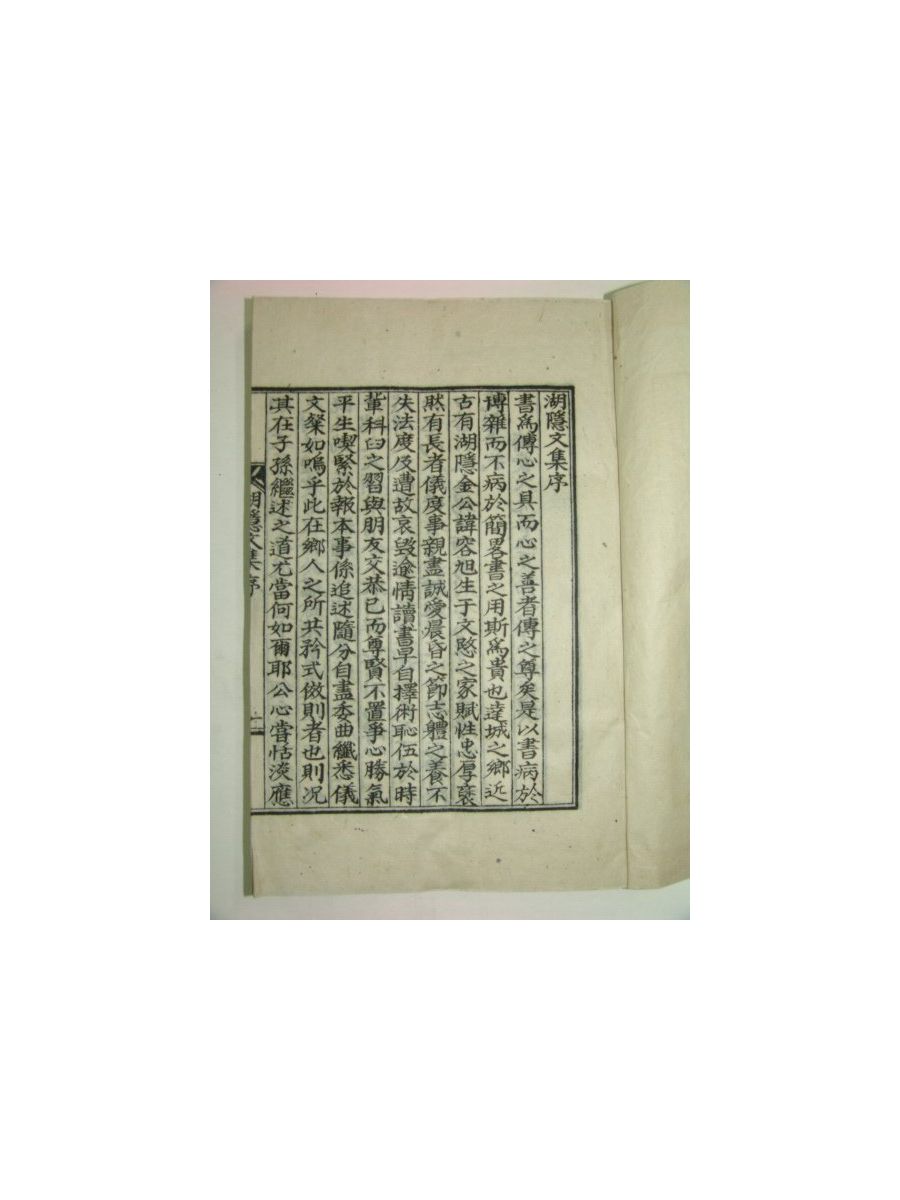 湖隱文集序
書爲傳心之具而心之善者傳之尊矣是以書病於
博雜而不病於簡畧書之用斯爲貴也達城之鄕近
古有湖隱金公諱容旭生于文愍之家賦性忠厚裒
然有長者儀度事親盡誠愛晨昏之節志體之養不
失法度及遭故哀毀逾情讀書早自擇術恥伍於時
軰科臼之習與朋友交恭已而尊賢不置爭心勝氣
平生喫緊於報本事係追述隨分自盡委曲纖悉儀
文粲如嗚乎此在鄕人之所共矜式倣則者也則况
其在子孫繼述之道尤當何如爾耶公心嘗恬淡應
湖隱文集序
一